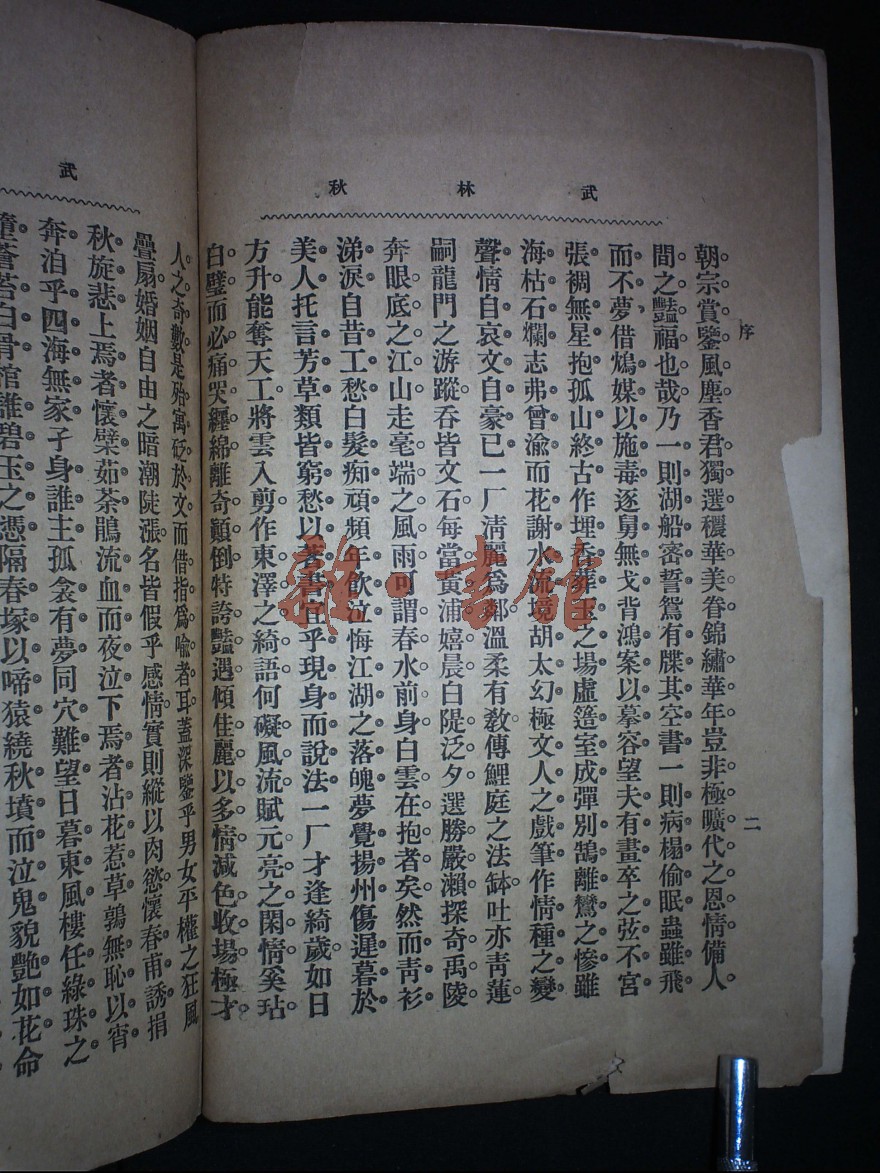 武林秋
序
二
朝宗賞鑒風塵香君獨選穠華美眷錦繡華年豈非極曠代之恩情備人
間之豔福也哉乃一則湖船密誓鴛有牒其空書一則病榻偷眠蟲雖飛
而不夢借鴆媒以施毒逐舅無戈背鴻案以摹容望夫有畫卒之弦不宮
張裯無星抱孤山終古作埋香葬玉之場虛簉室成彈別鵠離鸞之慘雖
海枯石爛志弗曾渝而花謝水流境胡太幻極文人之戲筆作情種之變
聲情自哀文自豪已一厂淸麗爲鄰溫柔有敎傳鯉庭之法缽吐亦靑蓮
嗣龍門之游蹤吞皆文石每當黃浦嬉晨白隄泛夕選勝嚴瀨探奇禹陵
奔眼底之江山走毫端之風雨可謂春水前身白雲在抱者矣然而靑衫
涕淚自昔工愁白髮痴頑頻年飲泣悔江湖之落魄夢覺揚州傷遲暮於
美人托言芳草類皆窮愁以著書宜乎現身而說法一厂才逢綺歲如日
方升能奪天工將雲入剪作東澤之綺語何礙風流賦元亮之閑情奚玷
白璧而必痛哭纏綿離奇顚倒特誇豔遇傾佳麗以多情減色收場極才
武
人之奇數是殆寓砭於文而借指爲喩者耳蓋深鑒乎男女平權之狂風
疊扇婚姻自由之暗潮陡漲名皆假乎感情實則縱以肉慾懷春甫誘捐
秋旋悲上焉者懷檗茹荼鵑流血而夜泣下焉者沾花惹草鶉無恥以宵
奔泊乎四海無家孑身誰主孤衾有夢同穴難望日暮東風樓任綠珠之
蒼苔白骨棺誰碧玉之憑隔春塚以啼猿繞秋墳而泣鬼貌艷如花命
雜·書館